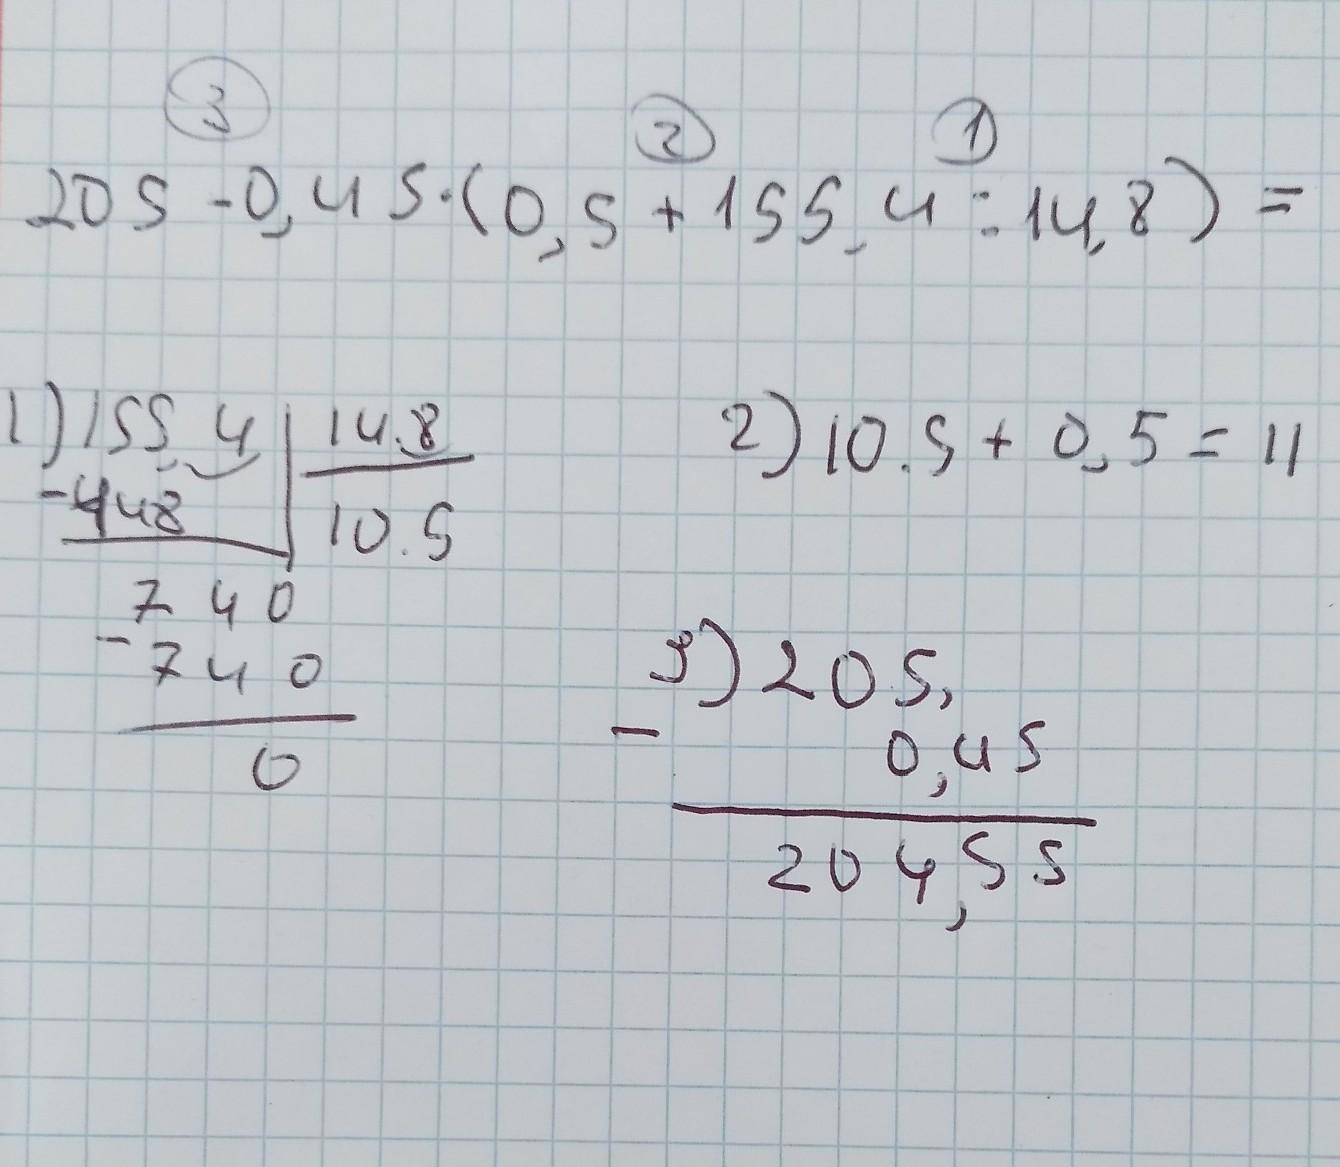 3 2 1
205 - 0,45·(0,5 + 155,4 : 14,8) =
1) 155,4 | 14,8
-448 10.5
740
-740
0
2) 10.5 + 0,5 = 11
3) 205,
- 0,45
204,55